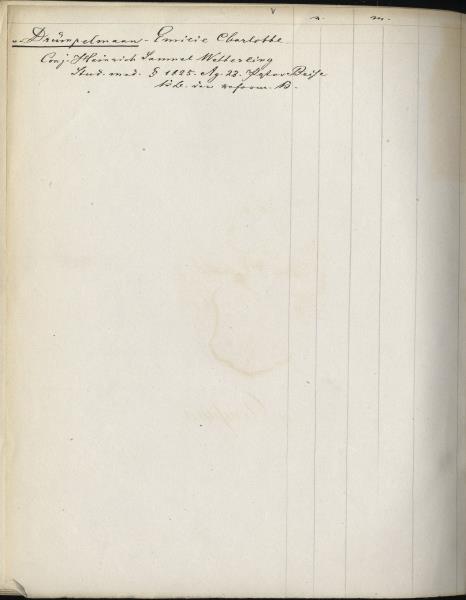 v. Drümpelmann - Emilie Charlotte
Conj. Heinrich Samuel Wetterling
Stud. med. § 1825. Ag. 23. Pstor Beise
KB. der reform. K.